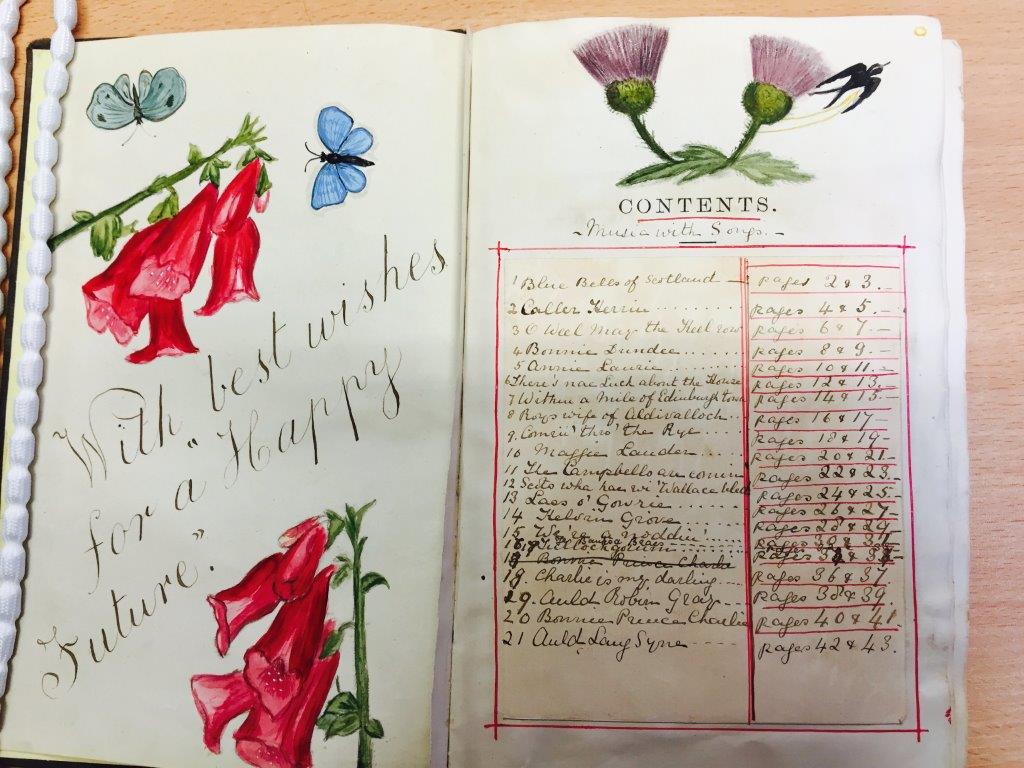 With best wishes
for a "Happy
Future."
CONTENTS.
- Music with Songs. -
1 Blue Bells of Scotland — pages 2 & 3. -
2 Caller Herrin ........ pages 4 & 5. -
3 O Weel May the Keel row pages 6 & 7. -
4 Bonnie Dundee ...... pages 8 & 9. -
5 Annie Laurie ...... pages 10 & 11. -
6 There's nae Luck about the House pages 12 & 13. -
7 Within a Mile of Edinburgh town pages 14 & 15. -
8 Roys wife of Aldivalloch .. pages 16 & 17 -
9. Comin' thro' the Rye .. pages 18 & 19 -
10 Maggie Lauder ..... pages 20 & 21 -
11 The Campbells are comin pages 22 & 23. -
12 Scots wha hae wi' Wallace bled pages 24 & 25. -
13 Lass o' Gowrie ..... pages 26 & 27 -
14 Kelvin Grove ..... pages 28 & 29
15 We're a' noddin'
Tullochgorum
18 Bonnie Prince Charlie
18. Charlie is my darling ... pages 36 & 37
19. Auld Robin Gray ... pages 38 & 39.
20 Bonnie Prince Charlie pages 40 & 41.
21 Auld Lang Syne ..... pages 42 & 43.